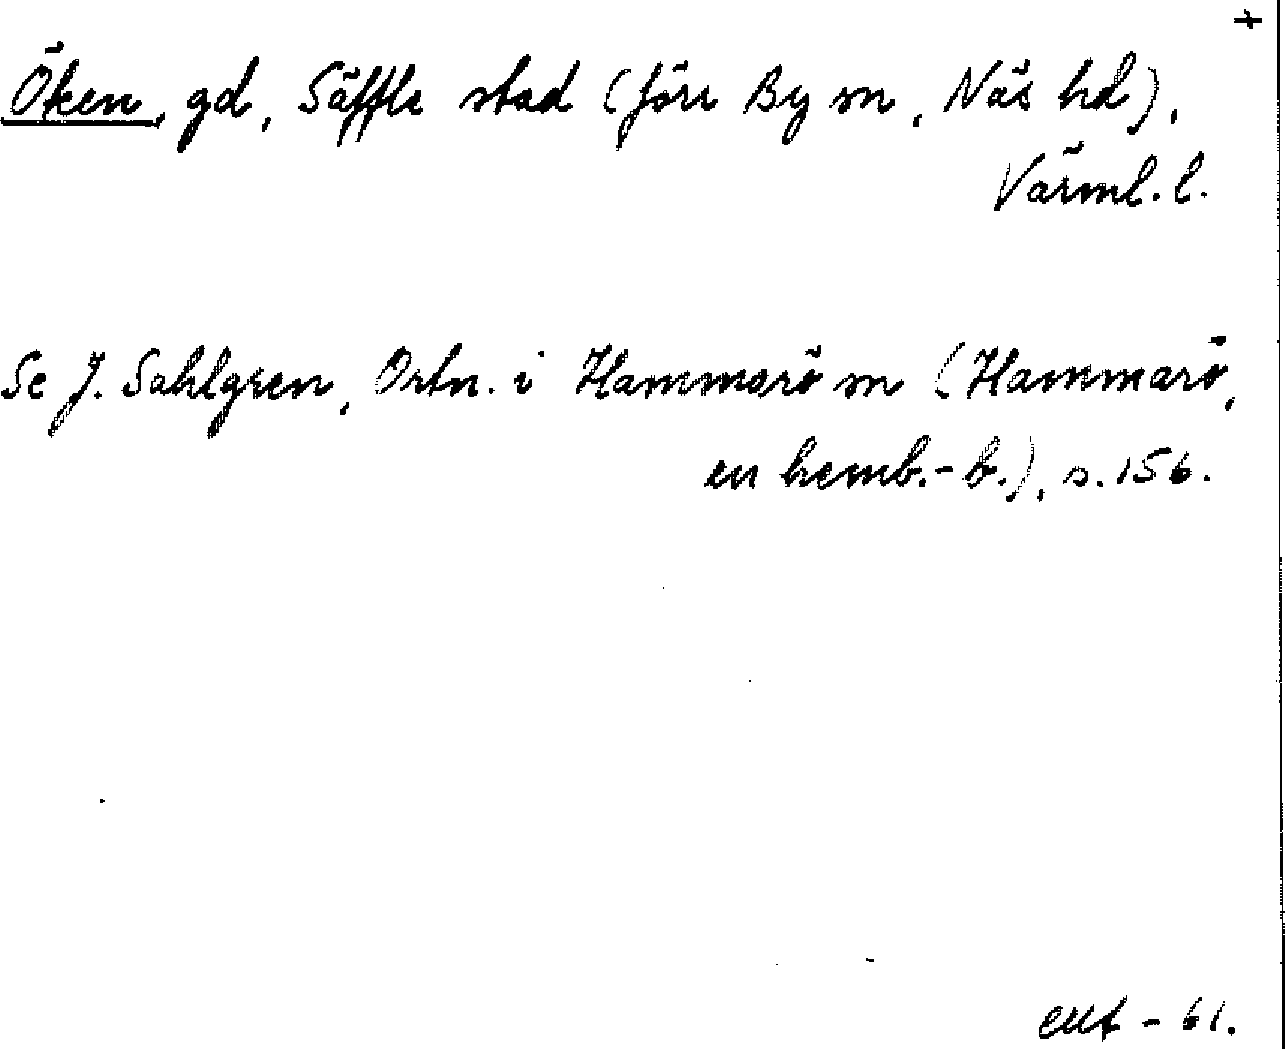 +
Öken, gd, Säffle stad (förr By sn, Näs hd),
Värml. l.
Se J. Sahlgren, Ortn. i Hammarö sn (Hammarö,
en hemb.-b.), s. 156.
- 61.